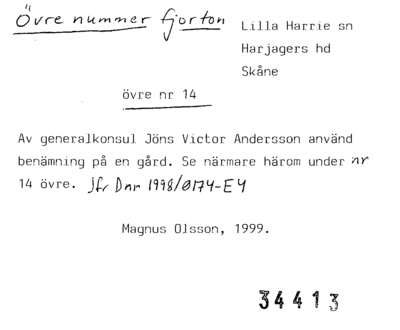 Övre nummer fjorton
Lilla Harrie sn
Harjagers hd
Skåne
övre nr 14
Av generalkonsul Jöns Victor Andersson använd
benämning på en gård. Se närmare härom under nr
14 övre. Jfr Dnr 1998/0174-E4
Magnus Olsson, 1999.
34413